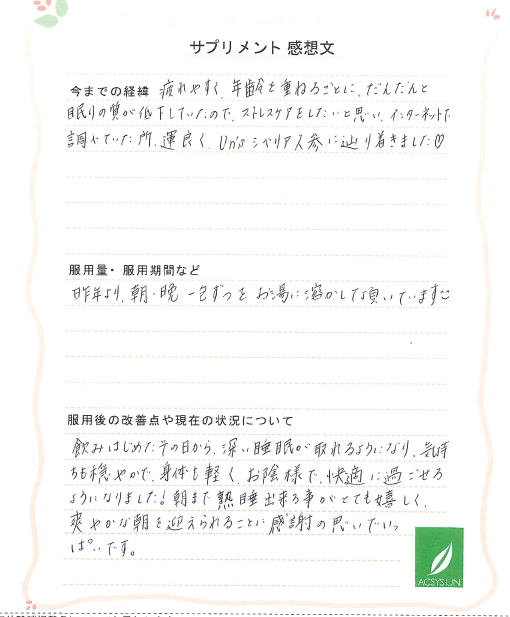 サプリメント 感想文
今までの経緯 疲れやすく、年齢を重ねるごとに、だんだんと
眠りの質が低下していたので、ストレスケアをしたいと思い、インターネットで
調べていた所、運良く、Un'sシベリア人参に辿り着きました♡
服用量・服用期間など
昨年より、朝・晩 一包ずつを お湯に溶かして頂いています
服用後の改善点や現在の状況について
飲みはじめたその日から、深い睡眠が取れるようになり、気持
ちも穏やかで、身体も軽く、お陰様で、快適に過ごせる
ようになりました！朝まで熟睡出来る事がとても嬉しく、
爽やかな朝を迎えられることに感謝の思いでいっ
ぱいです。
ACSYSUN